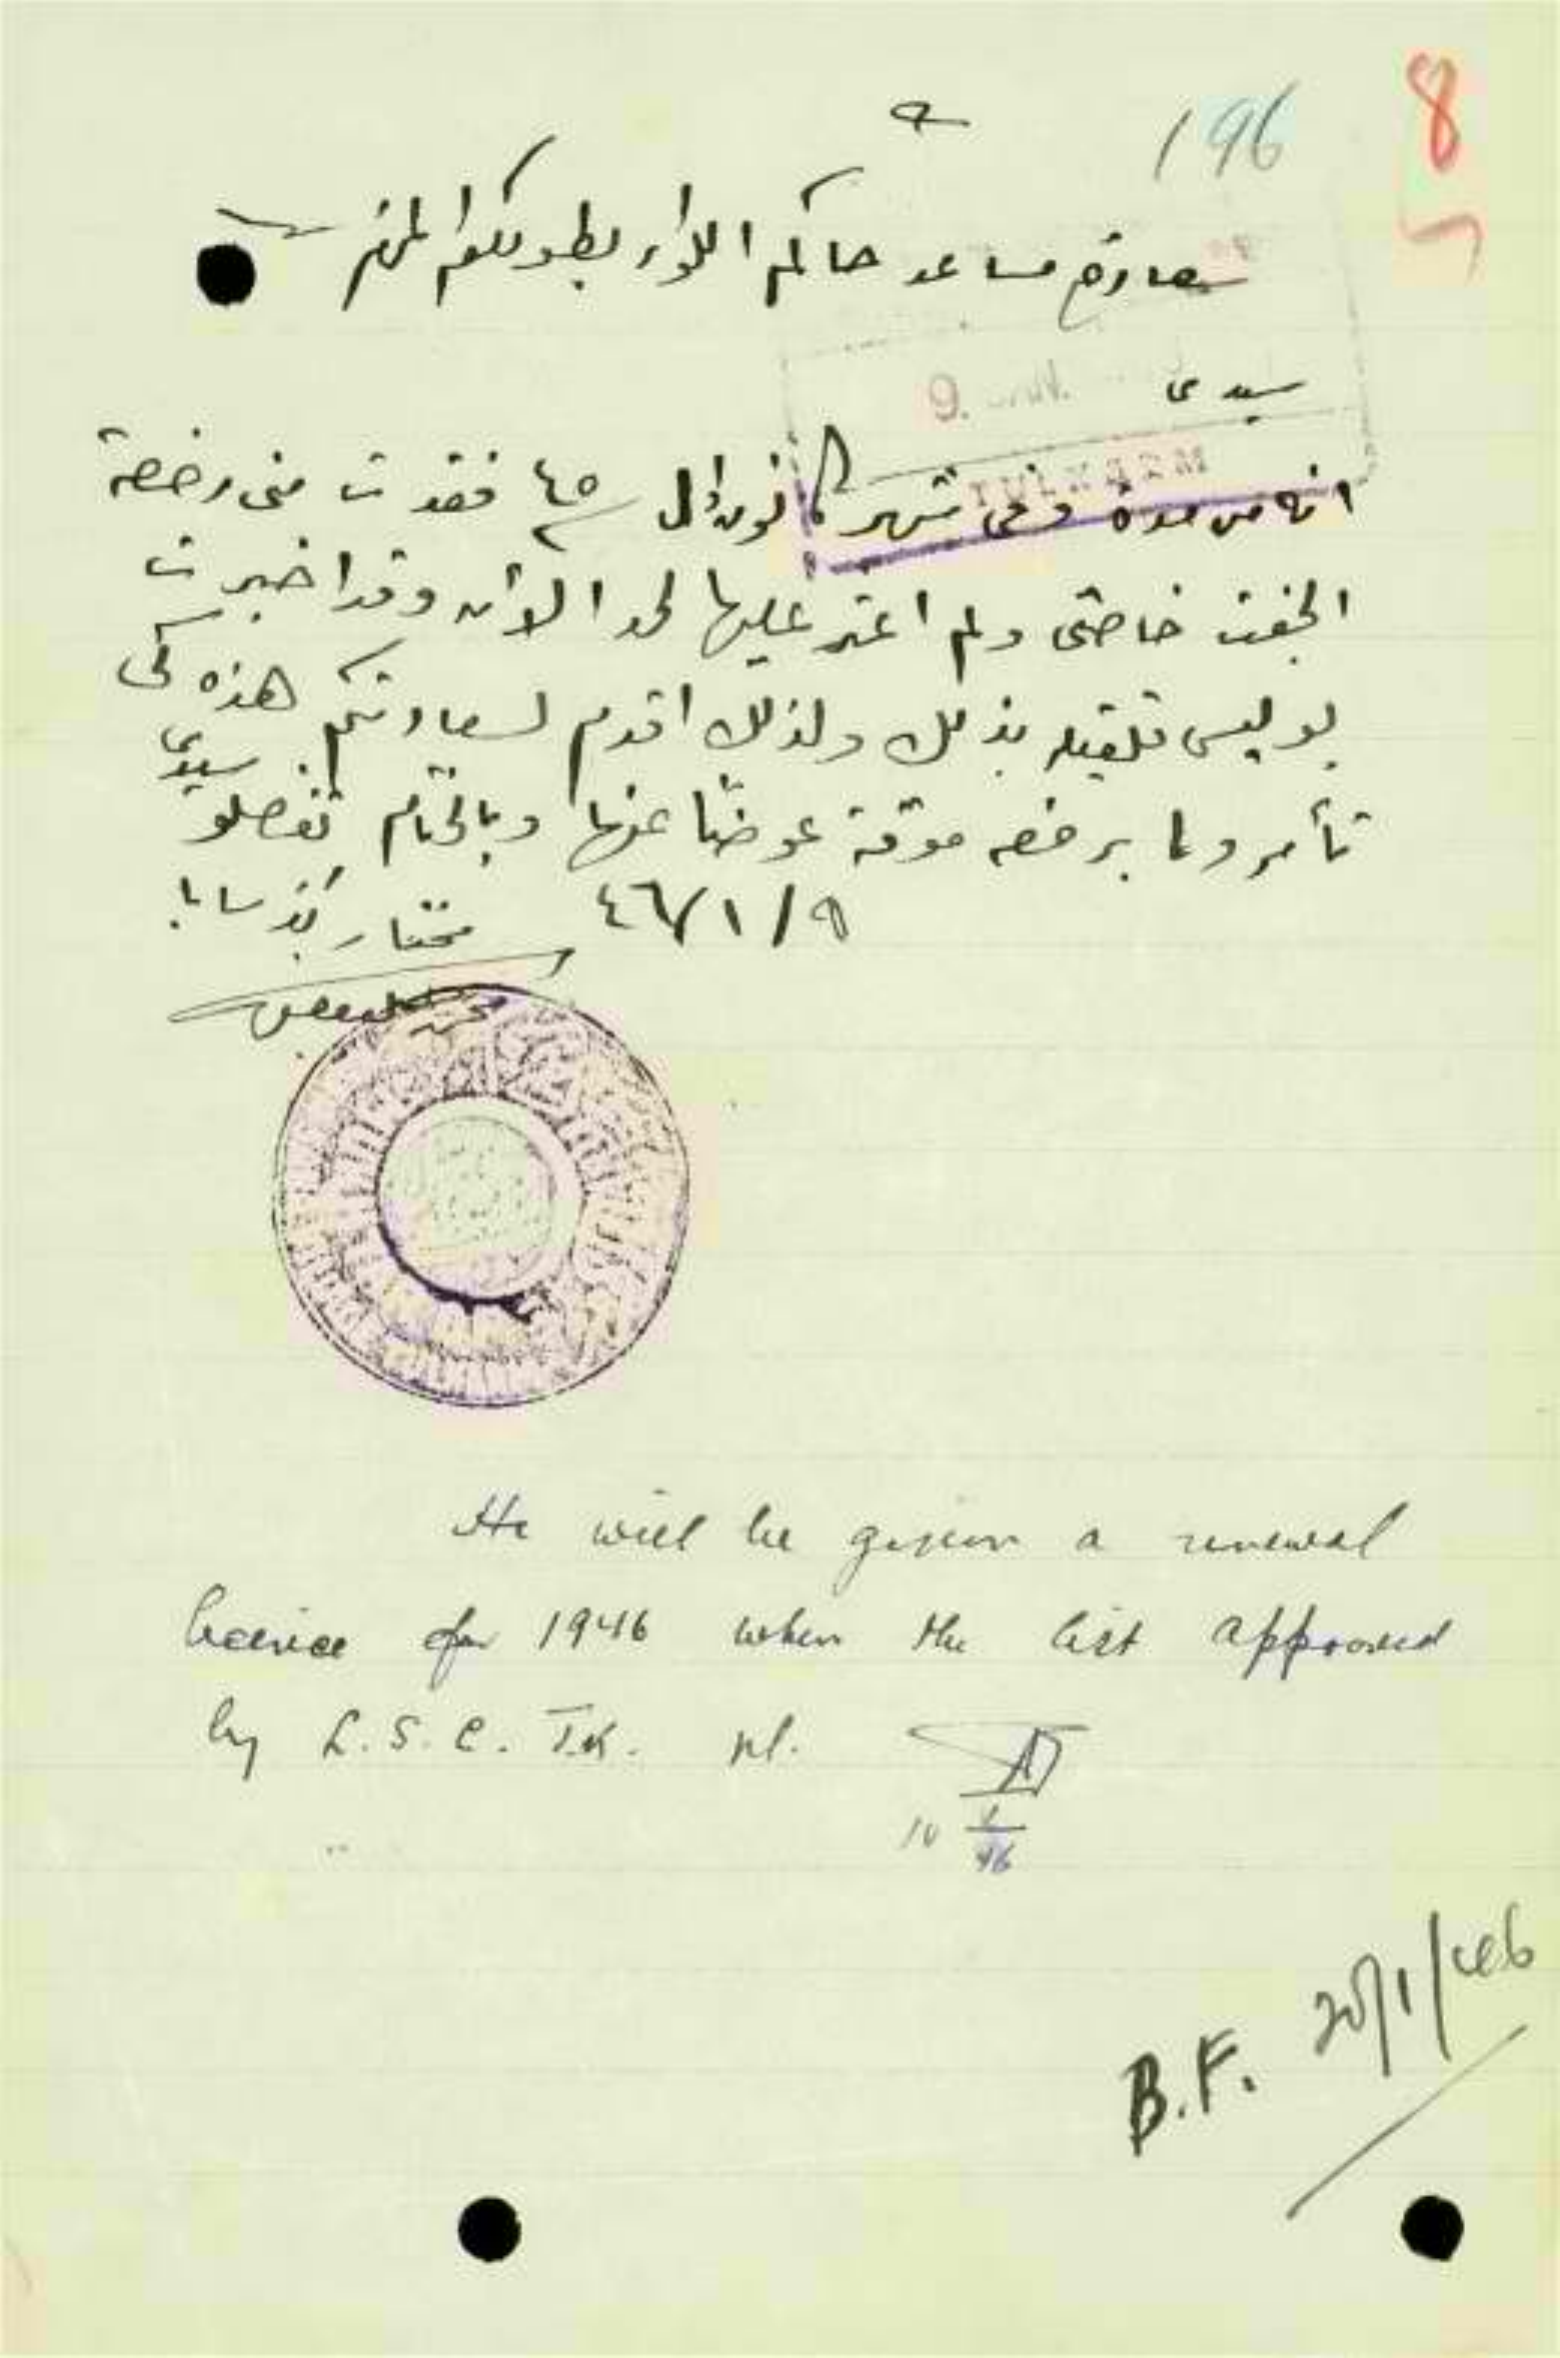 8
196
سعادة مساعد حاكم اللواء بطولكرم
سيدي
انه من مدة وفي شهر كانون اول ٤٥ فقدت مني رخصة
الجفت خاصتي ولم اعثر عليها لحد الآن وقد اخبرت
بوليس قلقيله بذلك ولذلك اقدم لسعادتكم هذه كي
تأمروا لنا برخصه موقتة عوضاً عنها وبالختام تفضلو سيدي
٤٦/١/٩
مختار كفر سابا
He will be given a renewal
licence for 1946 when the list approved
by L.S.C. T.K.
10 1/46
B.F. 20/1/46